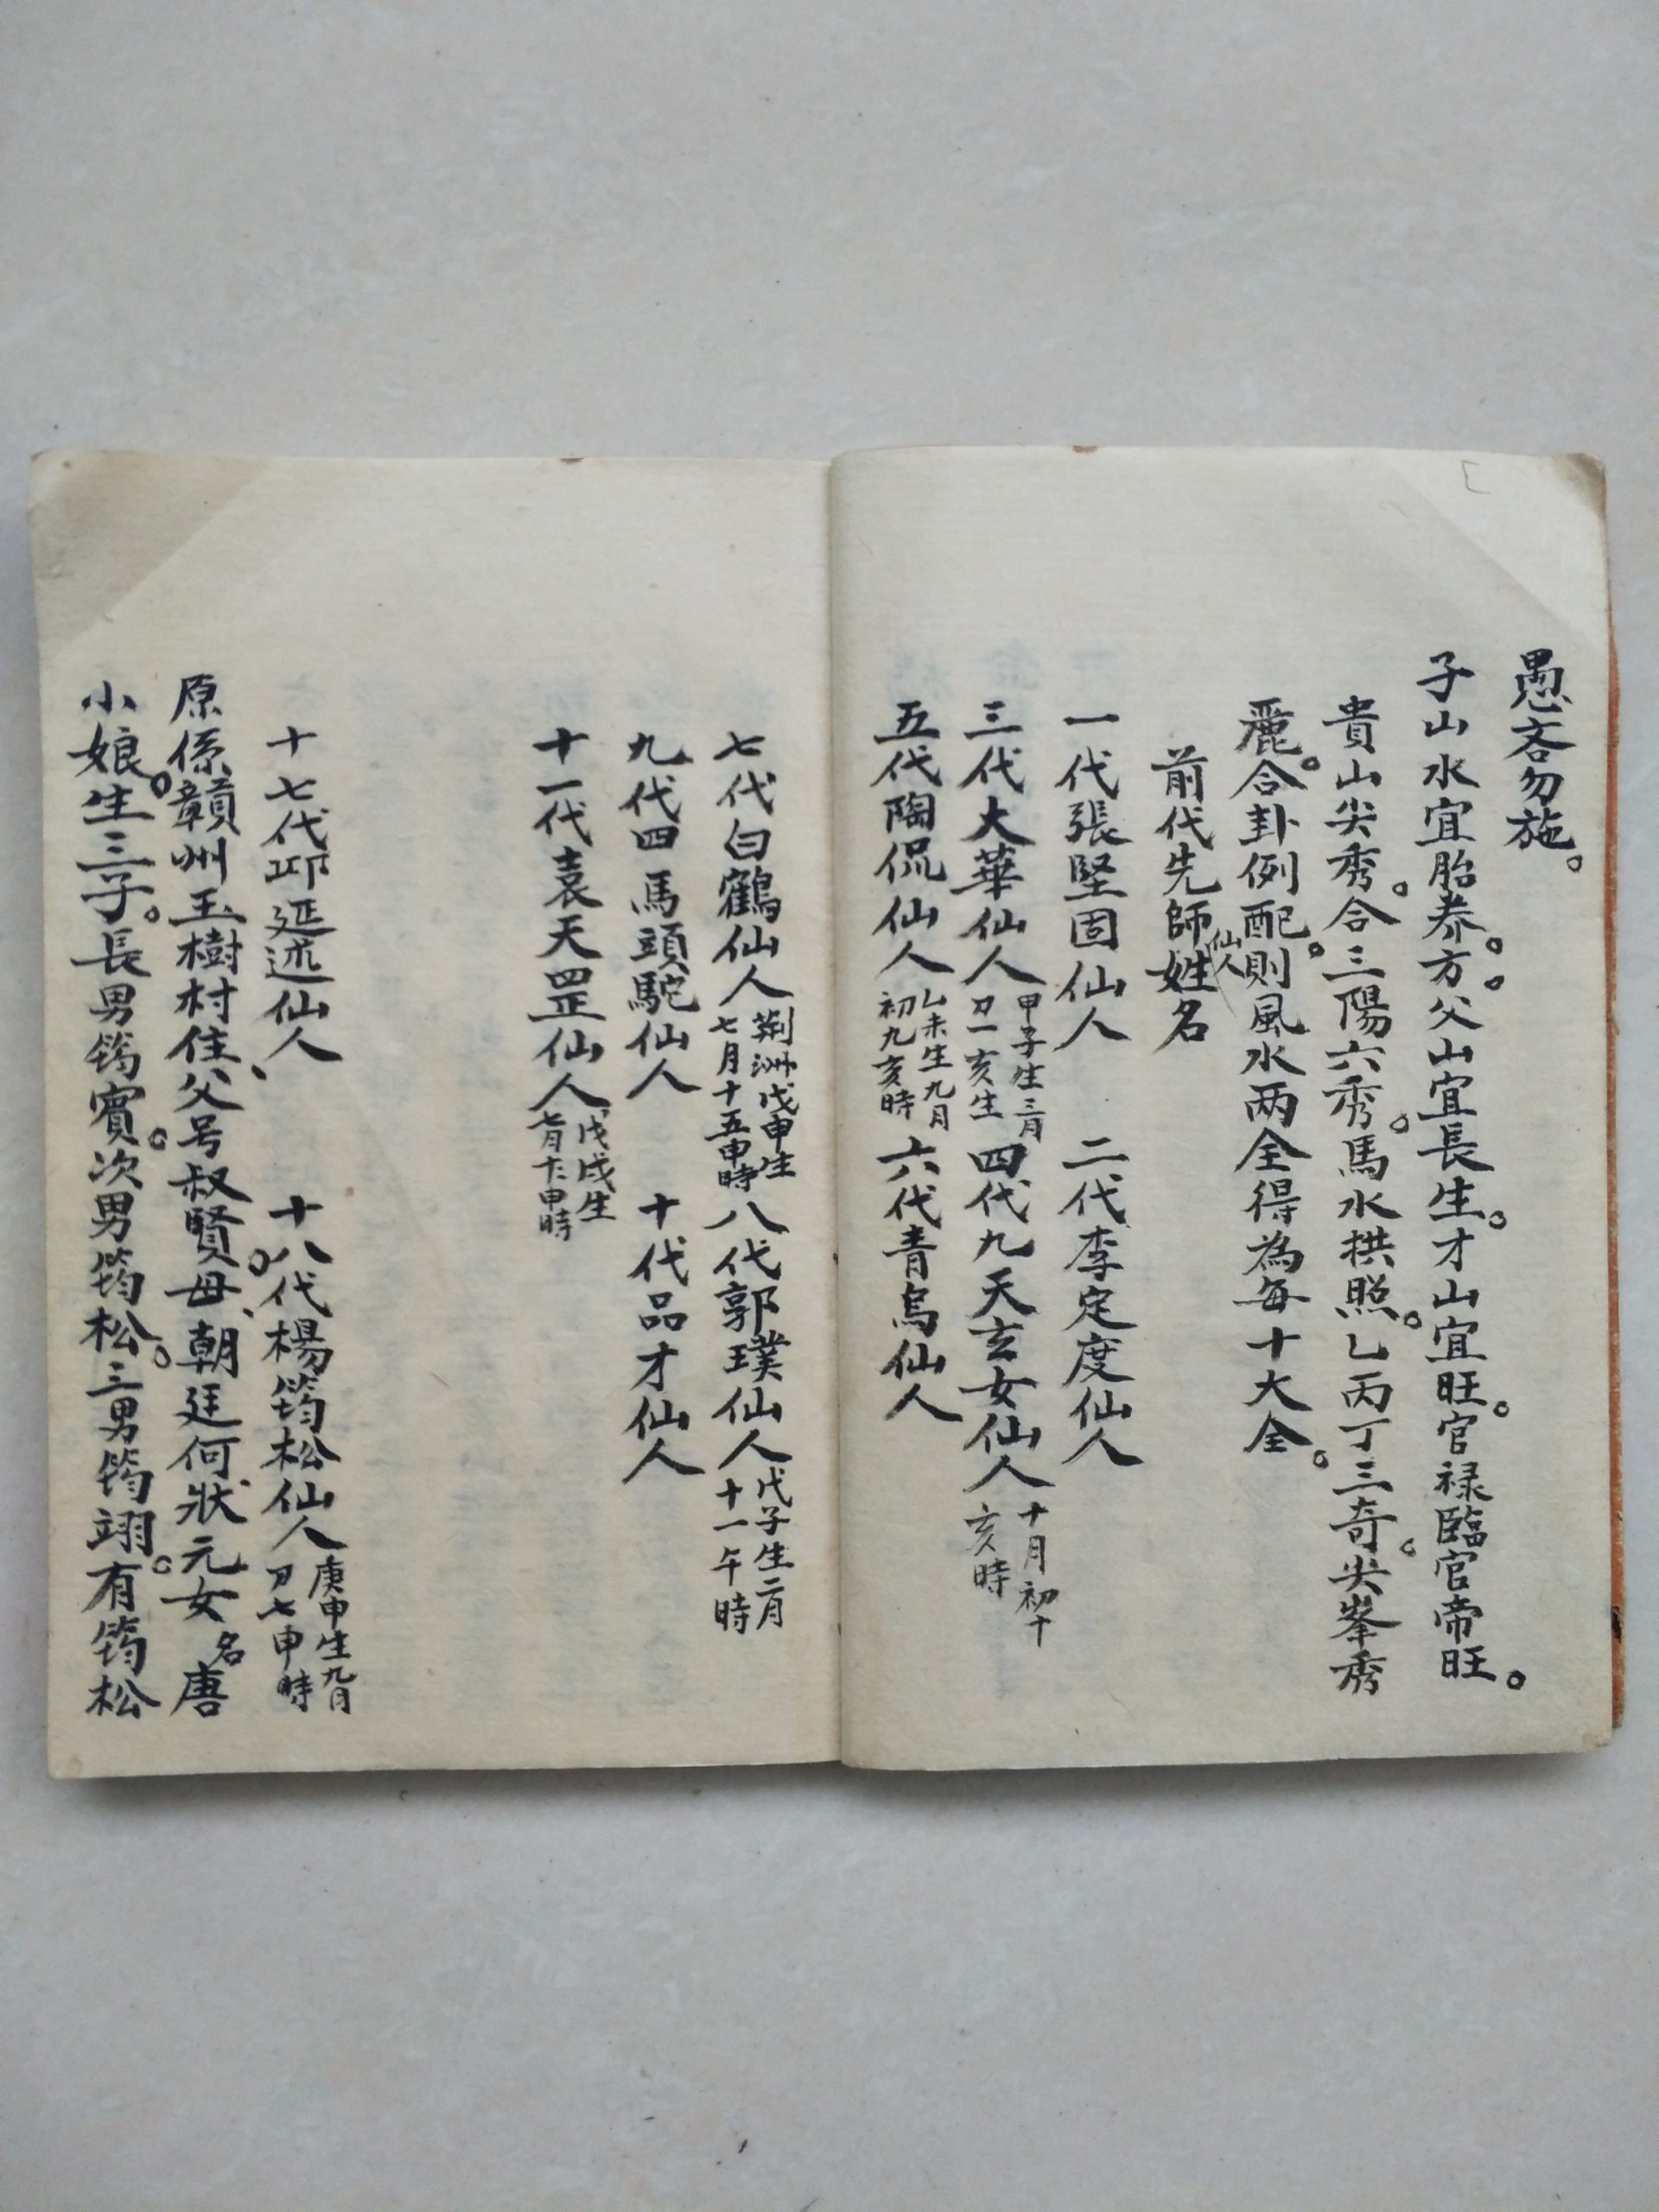 愚吝勿施。
子山水宜胎养。方。父山宜長生。才山宜旺。官禄臨官帝旺。
貴山尖秀。合三陽六秀。馬水拱照。乙丙丁三奇。尖峯秀
麗。合卦例配。則風水两全得為每十大全。
前代先師仙人姓名
一代張堅固仙人 二代李定度仙人
三代大華仙人 甲子生三月刀一亥生 四代九天玄女仙人 十月初十亥時
五代陶侃仙人 乙未生九月初九亥時 六代青烏仙人
七代白鶴仙人 荆洲戊申生七月十五申時 八代郭璞仙人 戊子生二月十一午時
九代四馬頭駝仙人 十代品才仙人
十一代袁天罡仙人 戊戌生七月十二申時
十七代邱延述仙人、 十八代楊筠松仙人 庚申生九月刀七申時
原係贛州玉樹村住、父号叔賢。母、朝廷何狀元女名唐
小娘。生三子。長男筠賓。次男筠松。三男筠翊。有筠松